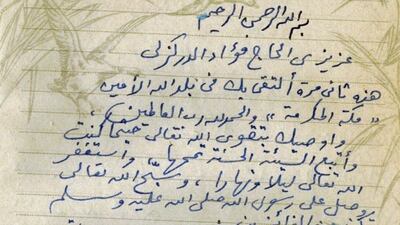 بسم الله الرحمن الرحيم
عزيزي الحاج فؤاد الدركزلي
هذه ثاني مرة ألتقي بك في بلد الله الأمين
"مكة المكرمة" والحمد لله رب العالمين،
وأوصيك بتقوى الله تعالى حيثما كنت
وأتبع السيئة الحسنة تمحها، واستغفر
الله تعالى ليلا ونهارا، وسبح الله تعالى
وصل على رسول الله صلى الله عليه وسلم